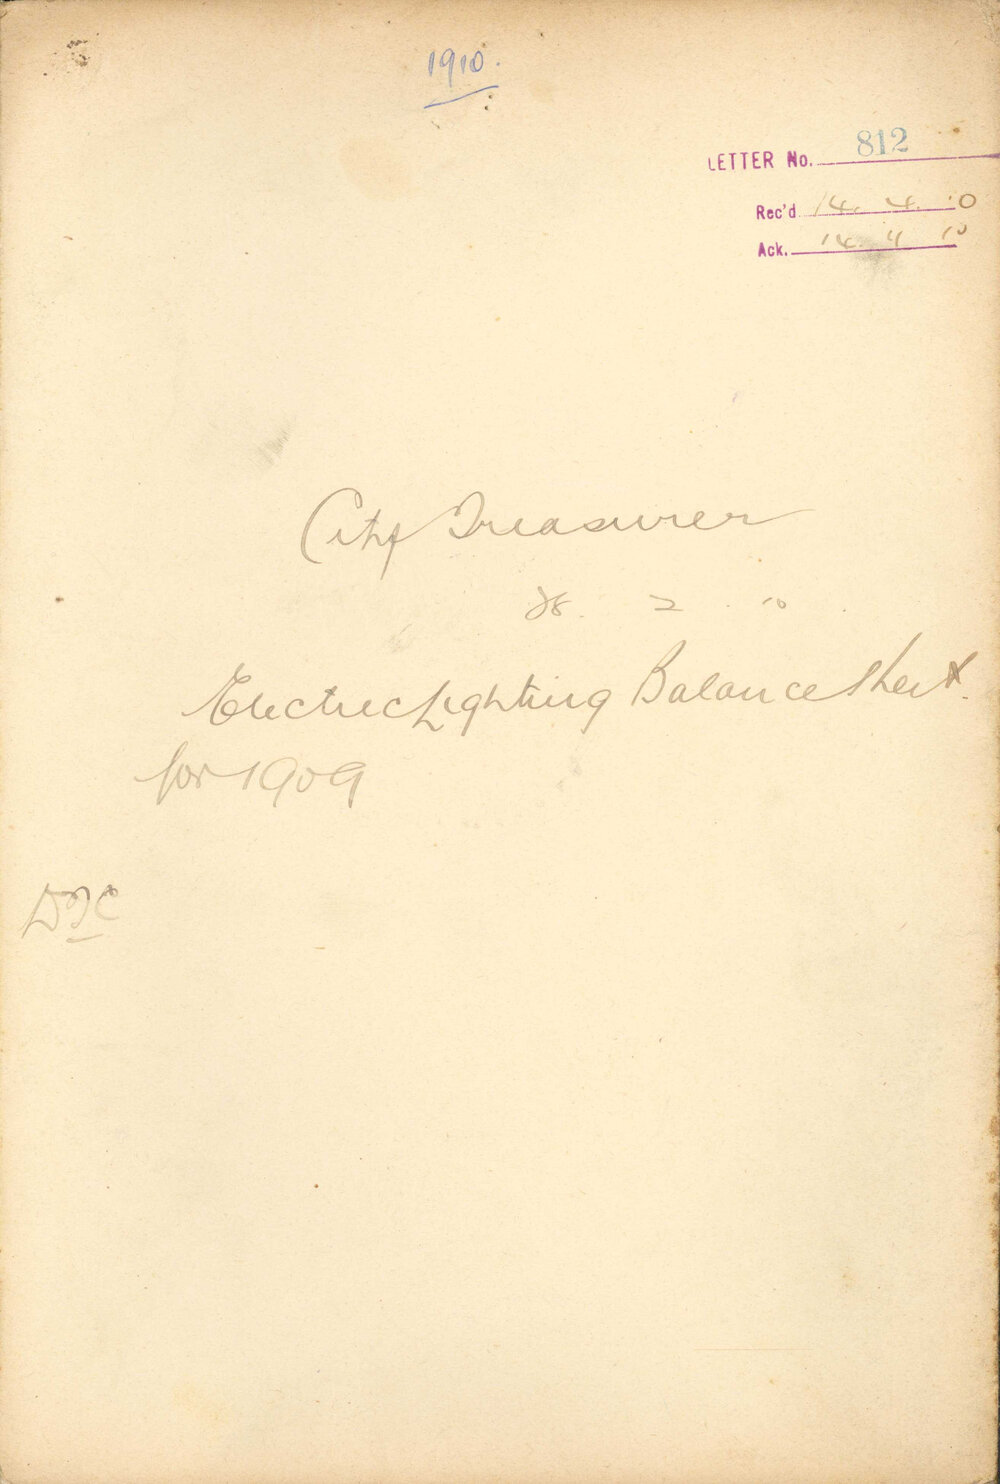 1910.
LETTER No. 812
Rec'd 14. 4. 10
Ack. 14 4 10
City Treasurer
28. 2. 10.
Electric Lighting Balance Sheet.
for 1909